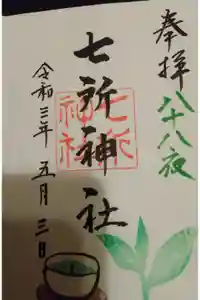 奉拝
八十八夜
七所神社
七所
神社
令和三年五月三日